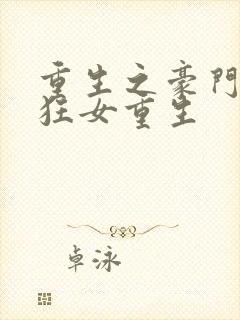 重生之豪門
狂女重生
卓泳